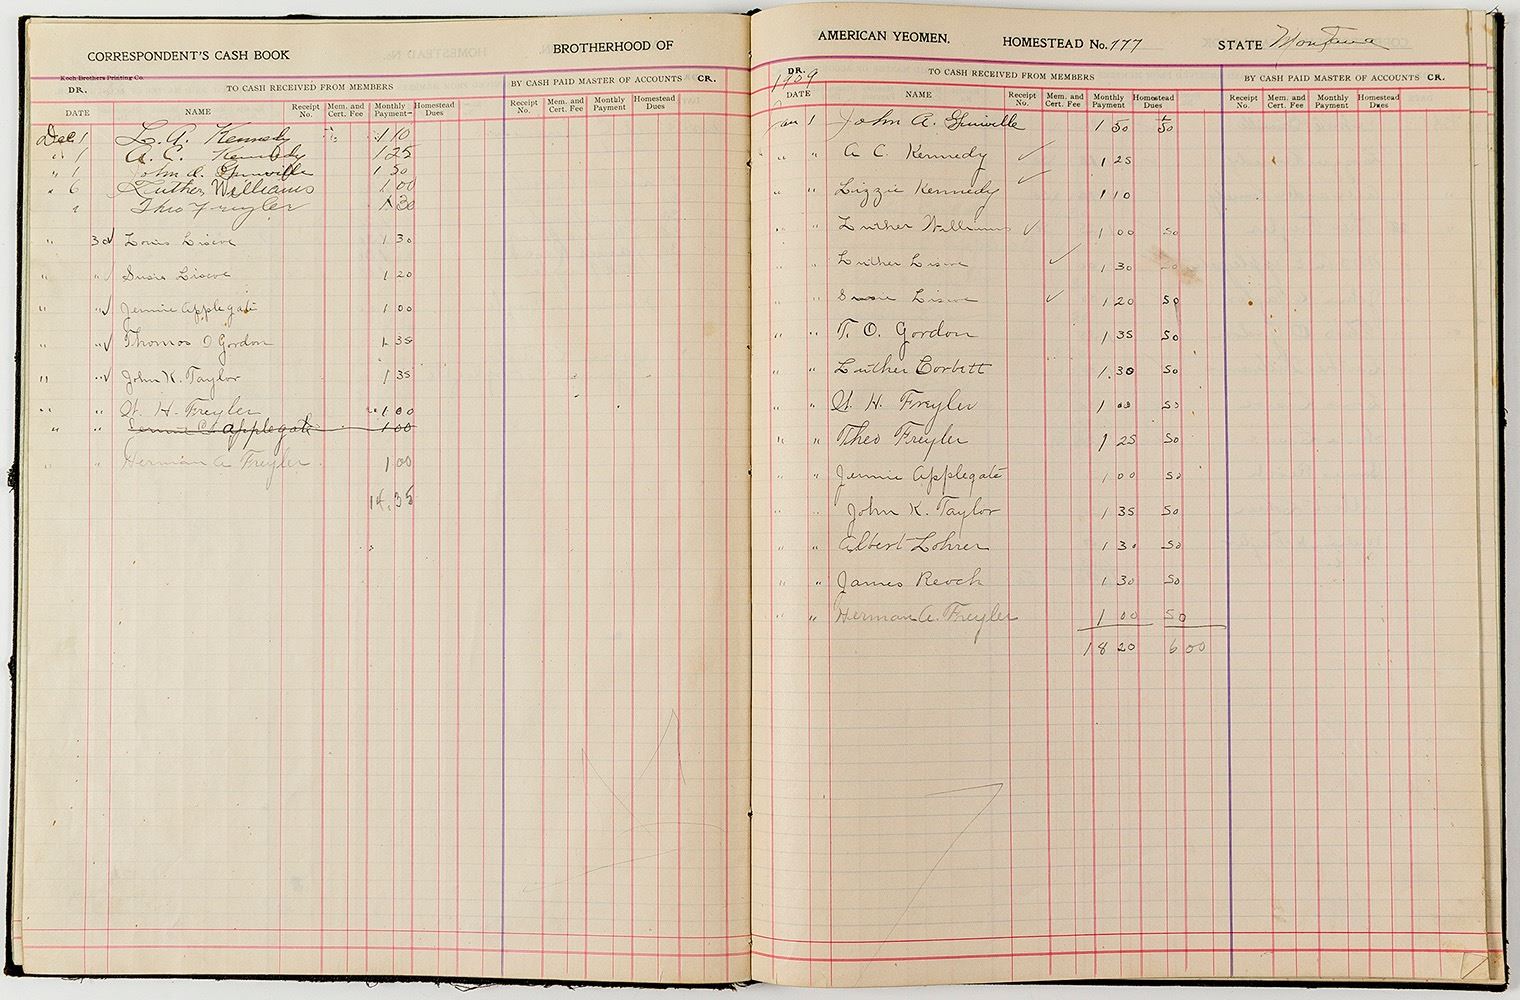 CORRESPONDENT'S CASH BOOK BROTHERHOOD OF
Koch Brothers Printing Co.
DR. TO CASH RECEIVED FROM MEMBERS BY CASH PAID MASTER OF ACCOUNTS CR.
DATE NAME Receipt No. Mem. and Cert. Fee Monthly Payment Homestead Dues Receipt No. Mem. and Cert. Fee Monthly Payment Homestead Dues
Dec 1 L. A. Kennedy 1 10
" 1 A. C. Kennedy 1 25
" 1 John A. 1 50
" 6 Luther Williams 1 00
" Theo Freyler 1 30
" 30 Louis Liseve 1 30
" " Susie Liseve 1 20
" " Jennie Applegate 1 00
" " Thomas O Gordon 1 35
" " John K. Taylor 1 35
" " H. Freyler 1 00
" " Applegate 1 00
" " Herman A Freyler 1 00
14.35
AMERICAN YEOMEN. HOMESTEAD No. 777 STATE Montana
DR. TO CASH RECEIVED FROM MEMBERS BY CASH PAID MASTER OF ACCOUNTS CR.
1909
DATE NAME Receipt No. Mem. and Cert. Fee Monthly Payment Homestead Dues Receipt No. Mem. and Cert. Fee Monthly Payment Homestead Dues
Jan 1 John A. 1 50 50
" " A C. Kennedy ✓ 1 25
" " Lizzie Kennedy ✓ 1 10
" " Luther Williams ✓ 1 00 50
" " Luther Liseve ✓ 1 30
" " Susie Liseve ✓ 1 20 50
" " T. O. Gordon 1 35 50
" " Luther Corbitt 1.30 50
" " H. Freyler 1 00 50
" " Theo Freyler 1 25 50
" " Jennie Applegate 1 00 50
" " John K. Taylor 1 35 50
" " Albert Lohrer 1 30 50
" " James Reock 1 30 50
" " Herman A. Freyler 1 00 50
18 20 6 00